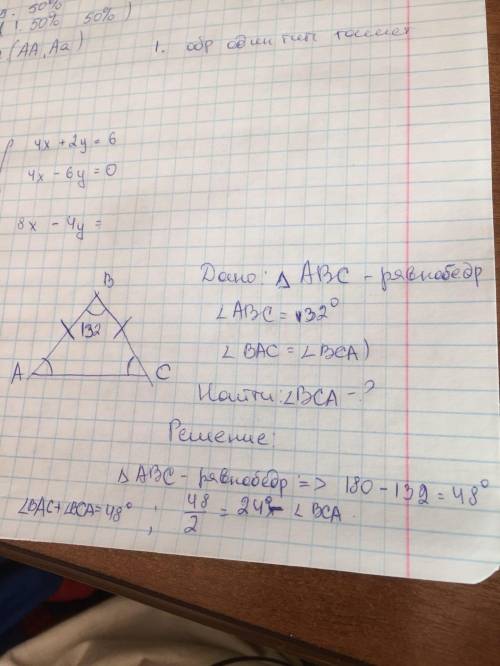 50%
( 1. 50% 50% )
(AA, Aa)
1. обр один тип гамет
4x + 2y = 6
4x - 6y = 0
8x - 4y =
B
132
A
C
Дано: △ ABC - равнобедр
∠ABC = 132°
∠BAC = ∠BCA)
Найти: ∠BCA - ?
Решение:
△ABC - равнобедр => 180 - 132 = 48°
∠BAC+∠BCA=48° ; 48/2 = 24° - ∠BCA